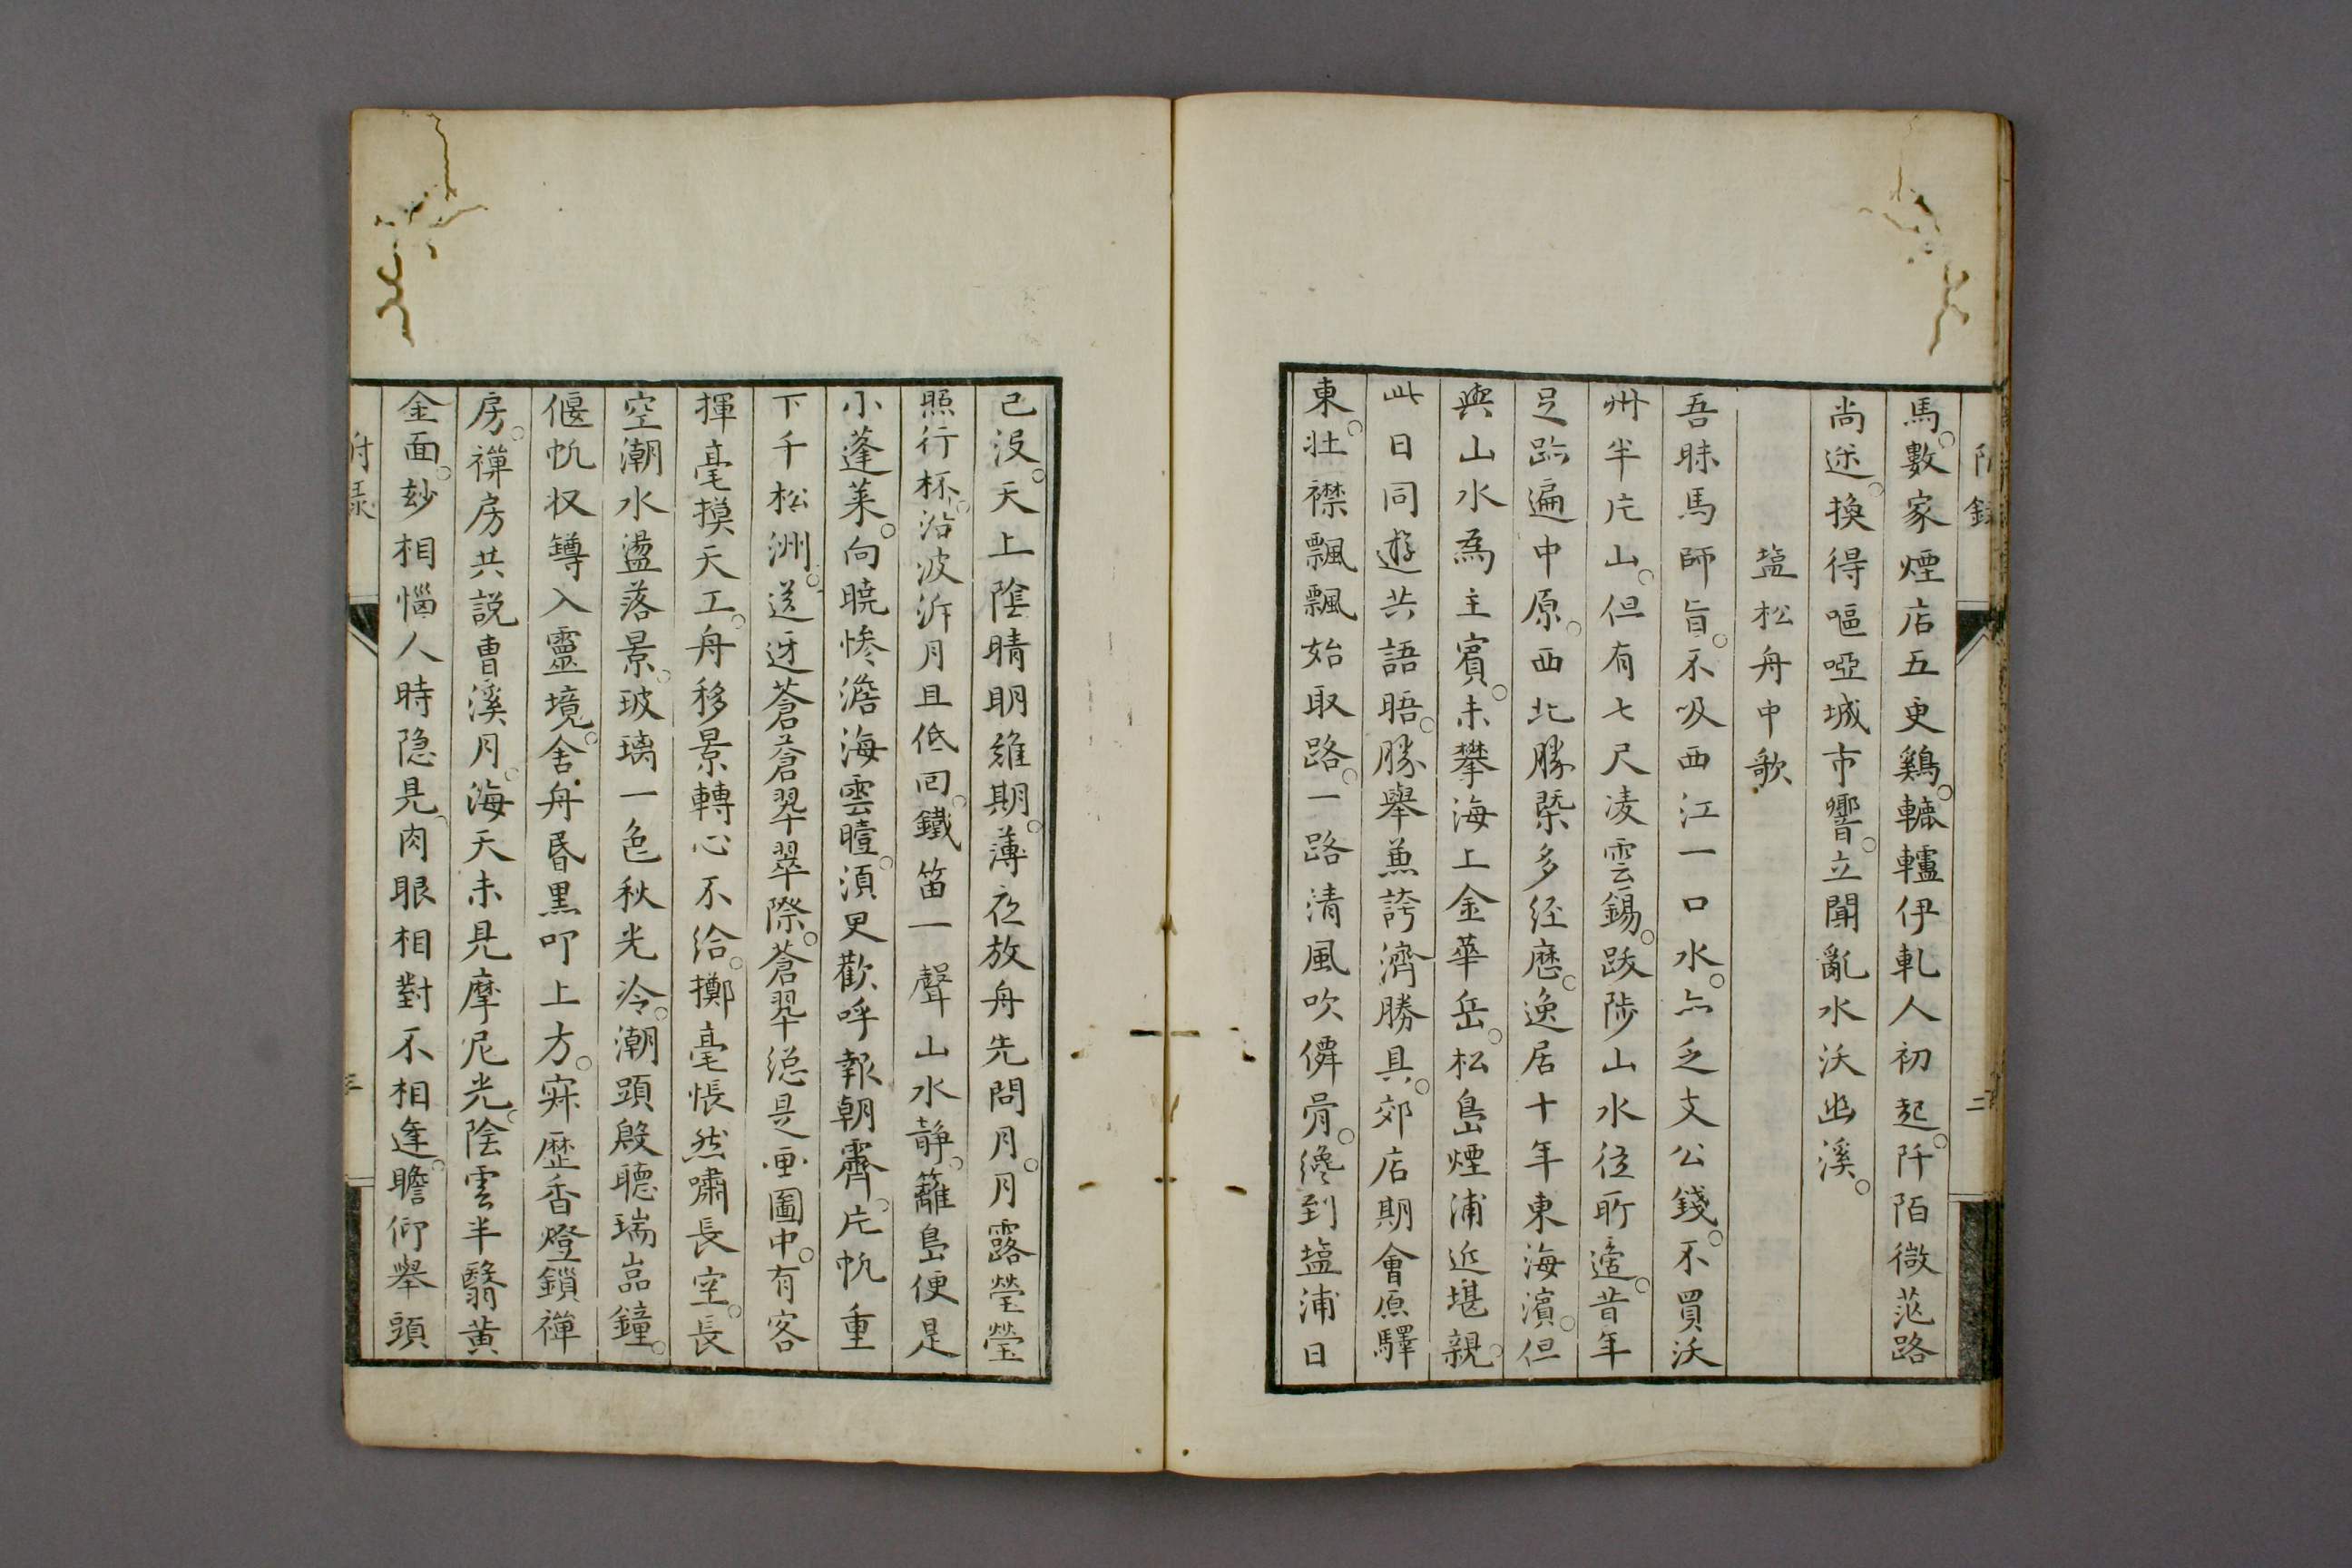 附錄
二
馬。數家煙店五更鷄。轆轤伊軋人初起。阡陌微茫路
尚迷。換得嘔啞城市響。立聞亂水沃幽溪。
塩松舟中歌
吾昧馬師旨。不吸西江一口水。亦乏支公錢。不買沃
州半片山。但有七尺凌雲錫。跋陟山水任所適。昔年
足跡遍中原。西北勝槩多經歷。逸居十年東海濱。但
與山水為主賓。未攀海上金華岳。松島煙浦近堪親。
此日同遊共語晤。勝舉兼誇濟勝具。郊店期會原驛
東。壮襟飄飄始取路。一路清風吹僊骨。纔到塩浦日
已沒。天上陰晴明維期。薄夜放舟先問月。月露瑩瑩
照行杯。沿波泝月且低回。鐵笛一聲山水静。籬島便是
小蓬萊。向曉惨澹海雲曀。須叟歡呼報朝霽。片帆重
下千松洲。送迓蒼蒼翠翠際。蒼翠總是画圖中。有客
揮毫摸天工。舟移景轉心不給。擲毫悵然嘯長空。長
空潮水盪落景。玻璃一色秋光冷。潮頭殷聽瑞嵓鐘。
偃帆収罇入靈境。舍舟昏黒叩上方。寂歴香燈鎖禅
房。禅房共説曹溪月。海天未見摩尼光。陰雲半翳黄
金面。玅相惱人時隠見。肉眼相對不相逢。瞻仰舉頭
附録
三